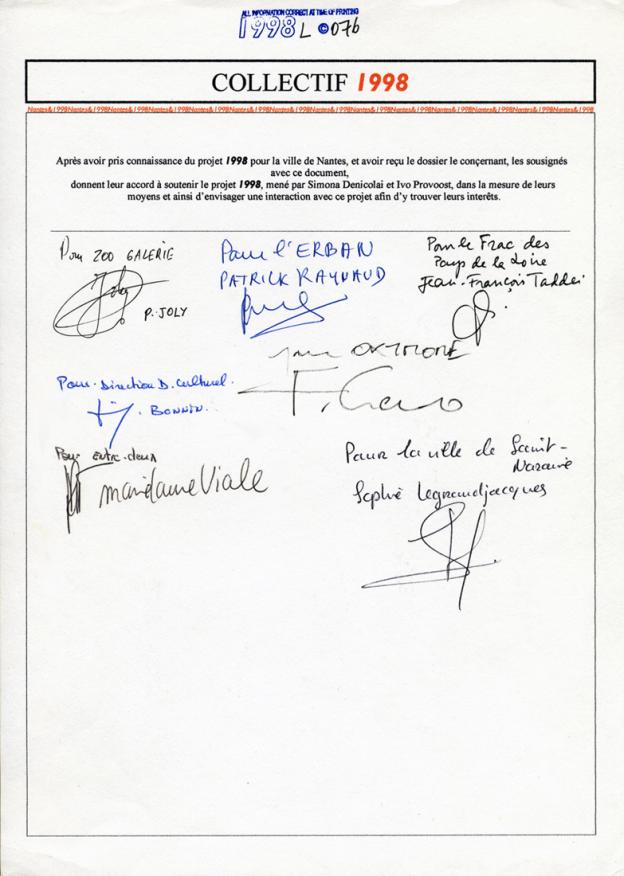 ALL INFORMATION CORRECT AT TIME OF PRINTING
1998 L ©076
COLLECTIF 1998
Nantes&1998Nantes&1998Nantes&1998Nantes&1998Nantes&1998Nantes&1998Nantes&1998Nantes&1998Nantes&1998Nantes&1998Nantes&1998Nantes&1998Nantes&1998Nantes&1998
Après avoir pris connaissance du projet 1998 pour la ville de Nantes, et avoir reçu le dossier le conçernant, les sousignés
avec ce document,
donnent leur accord à soutenir le projet 1998, mené par Simona Denicolai et Ivo Provoost, dans la mesure de leurs
moyens et ainsi d'envisager une interaction avec ce projet afin d'y trouver leurs interêts.
Pour ZOO GALERIE
P. JOLY
Pour l'ERBAN
PATRICK RAYNAUD
Pour le Frac des
Pays de la Loire
Jean-François Taddei
pour
Pour Direction D. Culturel.
BONNIN.
Pour entre-deux
marie laure Viale
Pour la ville de Saint-
Nazaire
Sophie Legrandjacques